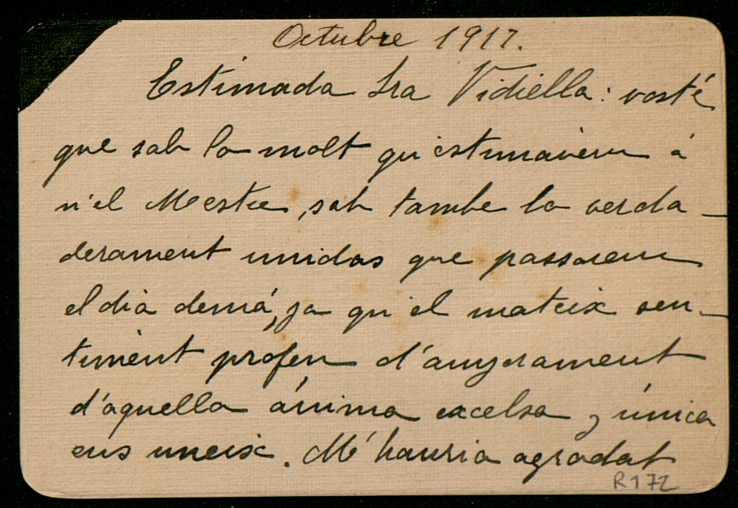 Octubre 1917.
Estimada Sra Vidiella: vosté
que sab lo molt qu'estimavem á
n'el Mestre, sab tambe lo verda-
derament unidas que passarem
el dia demá, ja qu'el mateix sen-
timent profon d'anyorament
d'aquella ánima excelsa y única
ens uneix. M'hauria agradat
R172